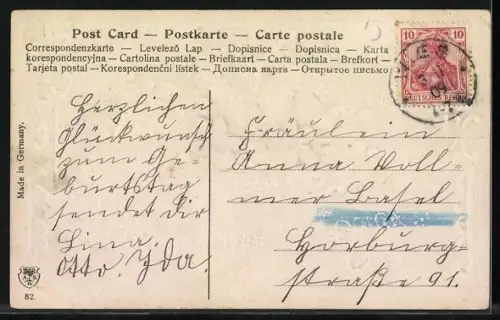 Post Card – Postkarte – Carte postale
Correspondenzkarte – Levelező Lap – Dopisnice – Dopisnica – Karta
korespondencyjna – Cartolina postale – Briefkaart – Carta postala – Brefkort –
Tarjeta postal – Korespondenční listek – Дописна карта – Открытое письмо
10 10
DEUTSCHES REICH
Herzlichen
Glückwunsch
zum Ge-
burtstag
sendet dir
Lina.
Otto. Ida.
Fräulein
Anna Voll-
mer Basel
Horburg-
straße 91.
Made in Germany.
82.